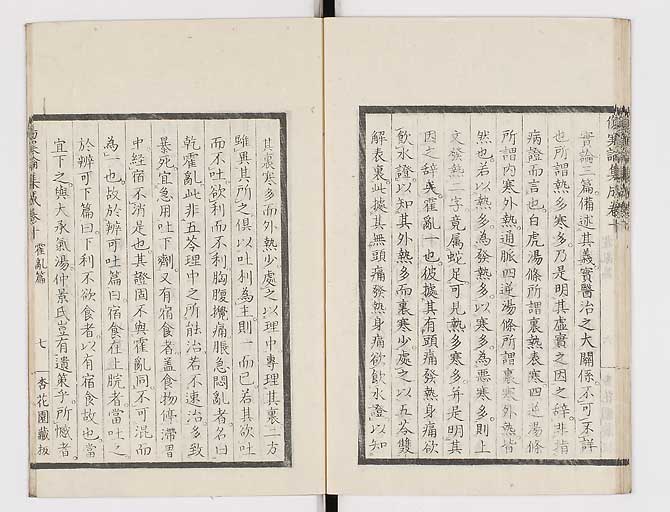 傷寒論集成卷十
實論三篇備述其義實醫治之大關係不可不詳
也所謂熱多寒多乃是明其虛實之因之辞非指
病證而言也白虎湯條所謂裏熱表寒四逆湯條
所謂內寒外熱通脈四逆湯條所謂裏寒外熱皆
然也若以熱多為發熱多以寒多為惡寒多則上
文發熱二字竟属蛇足可見熱多寒多并是明其
因之辞矣霍亂一也彼據其有頭痛發熱身痛欲
飲水證以知其外熱多而裏寒少處之以五苓雙
解表裏此據其無頭痛發熱身痛欲飲水證以知
其裏寒多而外熱少處之以理中專理其裏二方
雖異其所之俱以吐利為主則一而已若其欲吐
而不吐欲利而不利胸腹攪痛脹急悶亂者名曰
乾霍亂此非五苓理中之所能治若不速治多致
暴死宜急用吐下劑又有宿食者盖食物停滯胃
中經宿不消是也其證固不與霍亂同不可混而
為一也故於辨可吐篇曰宿食在上脘者當吐之
於辨可下篇曰下利不欲食者以有宿食故也當
宜下之與大承氣湯仲景氏豈有遺策乎所憾者
傷寒論集成卷十 霍亂篇 七 杏花園藏板